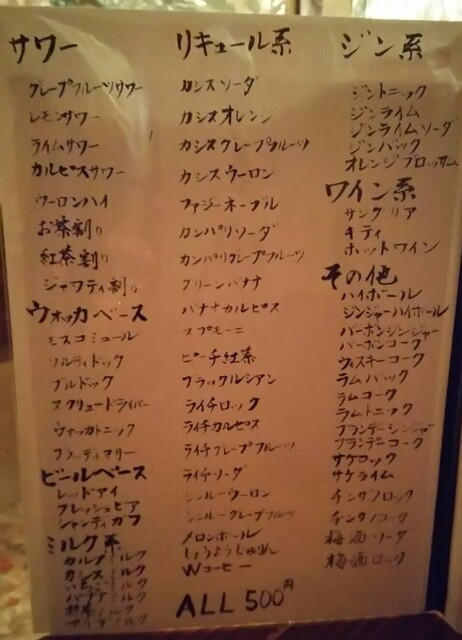 サワー
グレープフルーツサワー
レモンサワー
ライムサワー
カルピスサワー
ウーロンハイ
お茶割り
紅茶割り
ジャワティ割り
ウォッカベース
モスコミュール
ソルティドック
ブルドック
スクリュードライバー
ウォッカトニック
ブラッディマリー
ビールベース
レッドアイ
シャンディガフ
ミルク系
カルアミルク
カシスミルク
リキュール系
カシスソーダ
カシスオレンジ
カシスグレープフルーツ
カシスウーロン
ファジーネーブル
カンパリソーダ
カンパリグレープフルーツ
グリーンバナナ
バナナカルピス
スプモーニ
ピーチ紅茶
ブラックルシアン
ライチロック
ライチカルピス
ライチグレープフルーツ
ライチソーダ
メロンボール
Wコーヒー
ALL 500円
ジン系
ジントニック
ジンライム
ジンライムソーダ
ジンバック
オレンジブロッサム
ワイン系
サングリア
キティ
ホットワイン
その他
ハイボール
ジンジャーハイボール
バーボンジンジャー
バーボンコーク
ウィスキーコーク
ラムバック
ラムコーク
ラムトニック
ブランデージンジャー
ブランデーコーク
サケロック
サケライム
チンザノロック
チンザノコーク
梅酒ソーダ
梅酒ロック